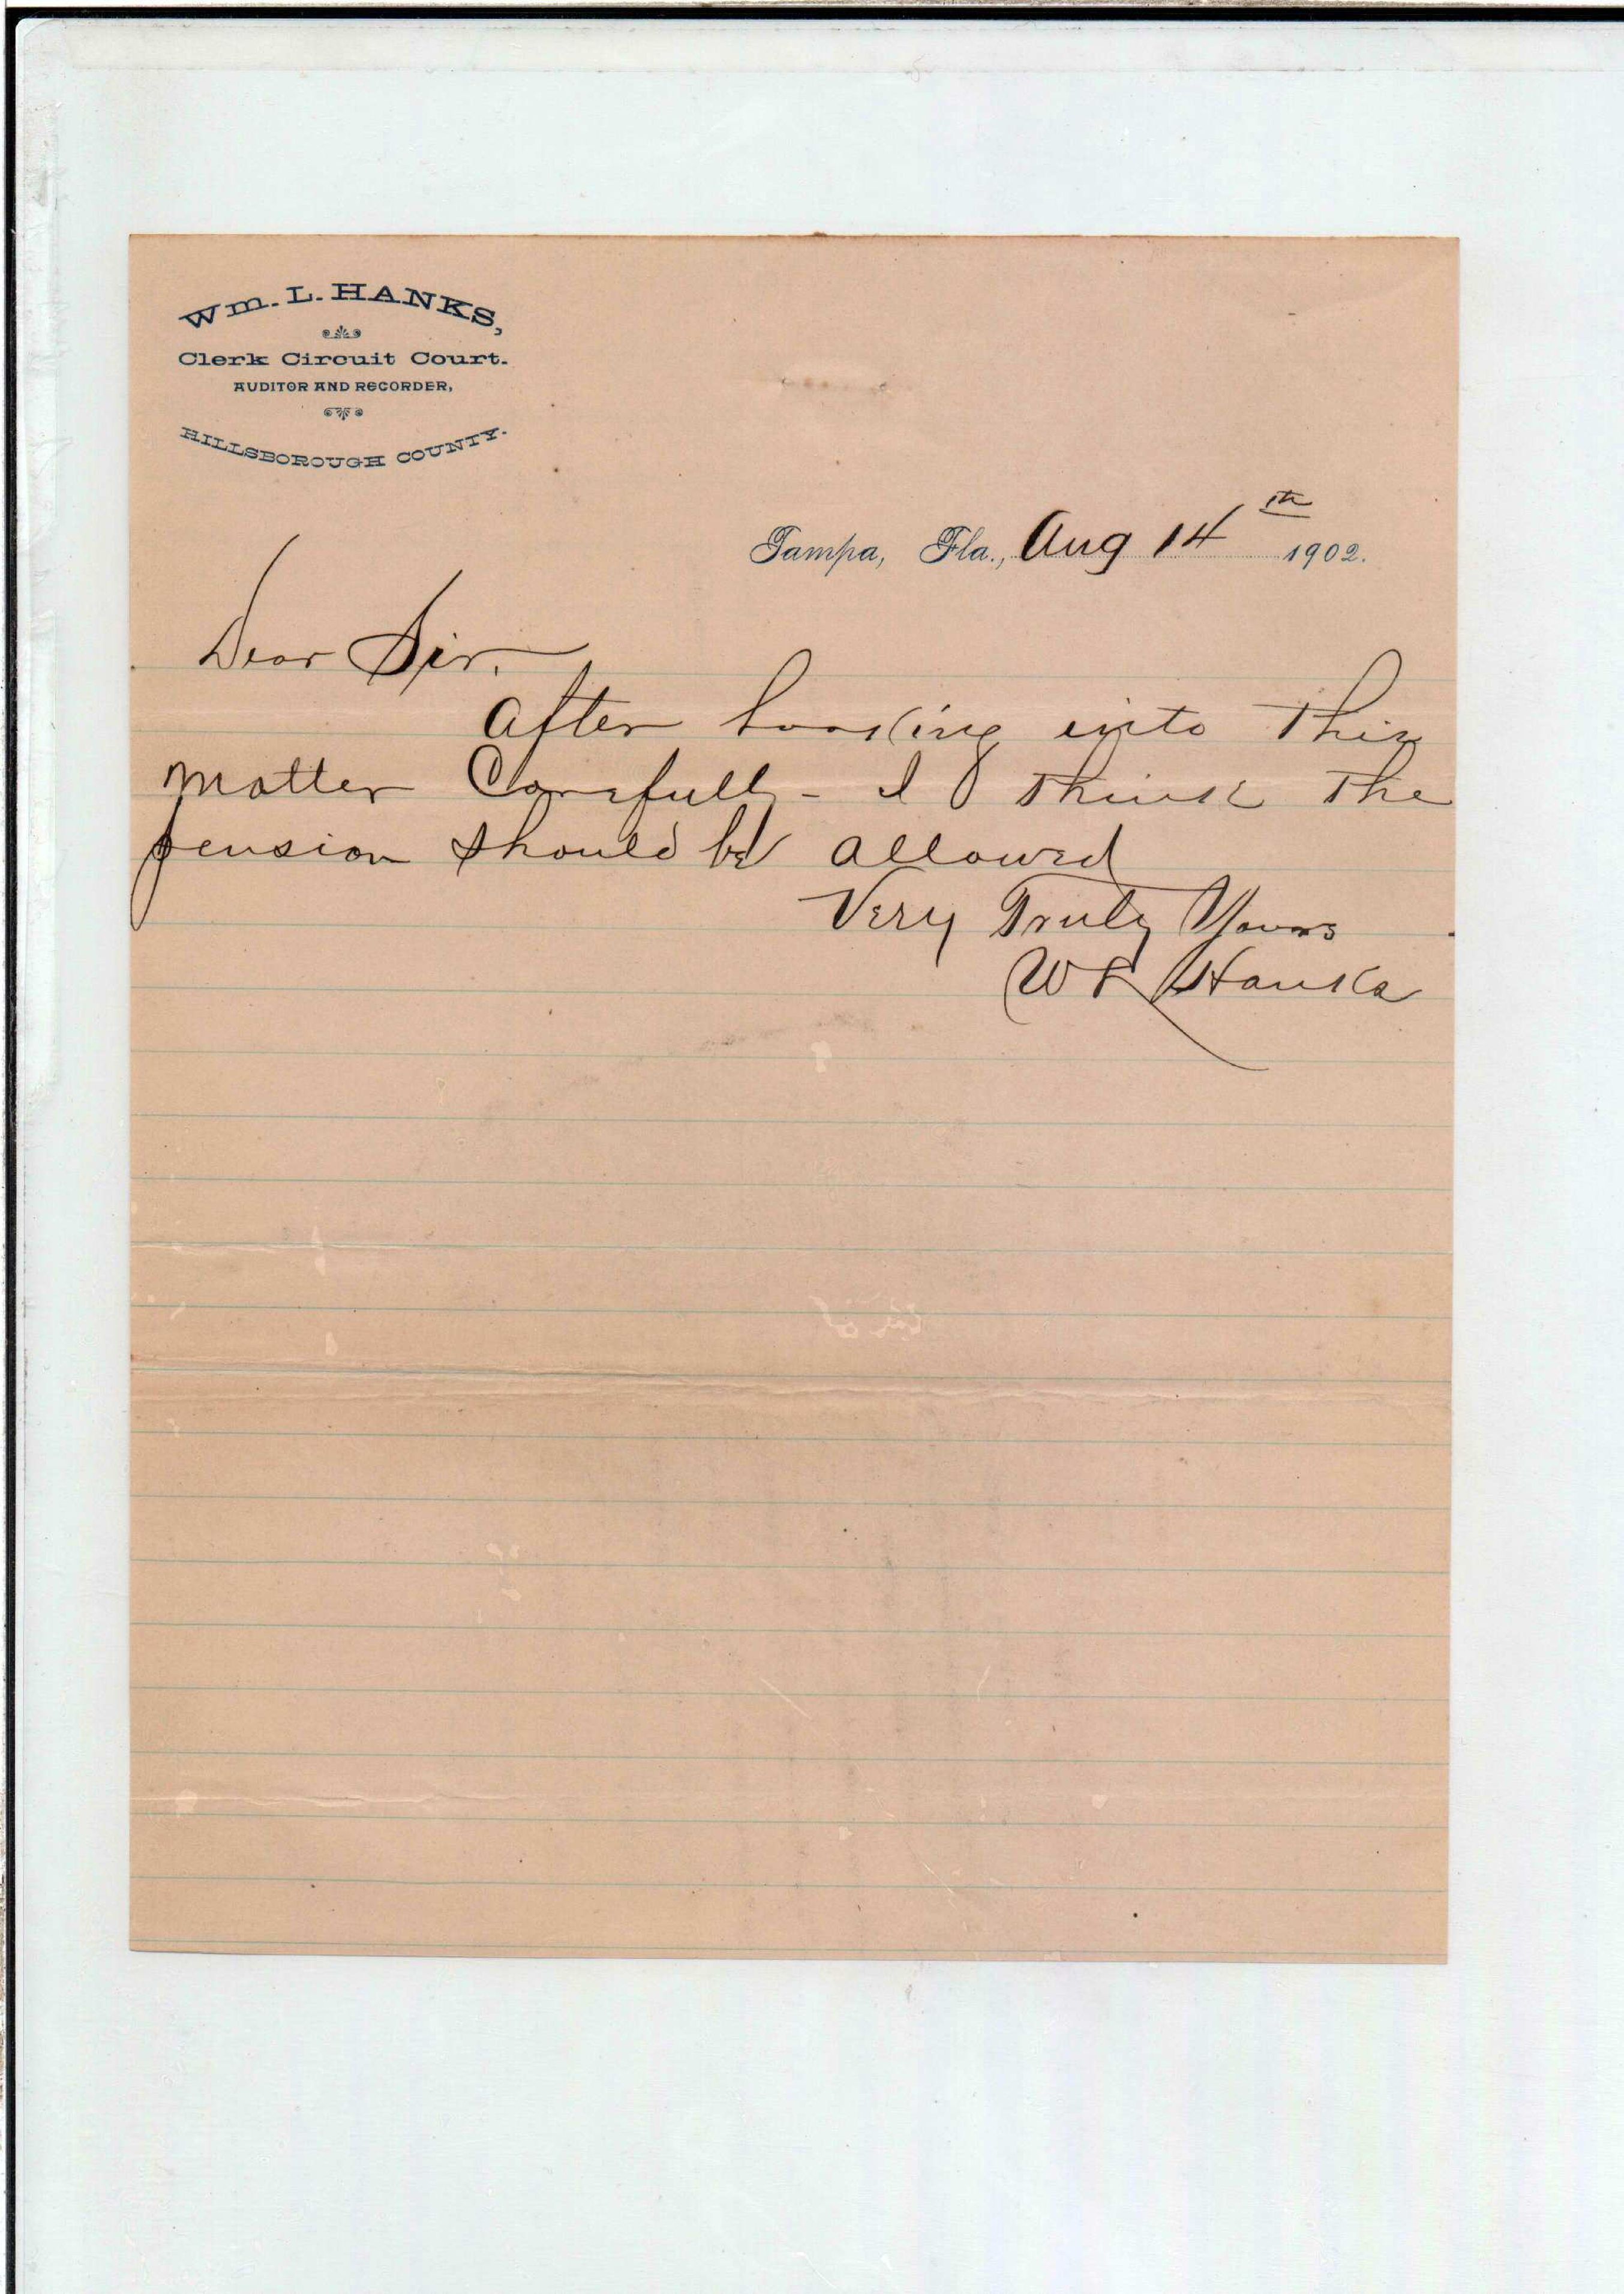 Wm. L. HANKS,
Clerk Circuit Court.
AUDITOR AND RECORDER,
HILLSBOROUGH COUNTY.
Tampa, Fla., Aug 14th 1902.
Dear Sir.
After looking into this
matter Carefully - I think the
pension should be allowed
Very Truly Yours
W L Hanks